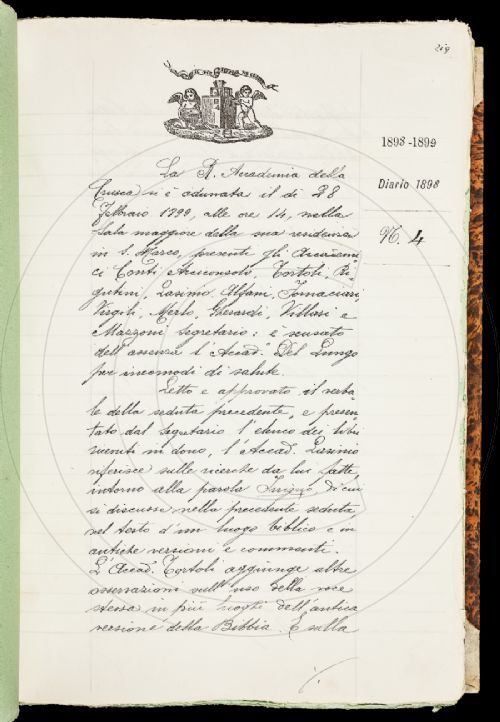 219
1898-1899
Diario 1898
N. 4
La R. Accademia della
Crusca si è adunata il dì 28
Febbraio 1899, alle ore 14, nella
Sala maggiore della sua residenza
in S. Marco, presenti gli Accademi
ci Conti Arciconsolo, Tortoli, Ri
gutini, Rasimo, Alfani, Tornaciari,
Virgili, Merlo, Gherardi, Villari e
Mazzoni Segretario: è scusato
dell'assenza l'Accad. Del Lungo
per incomodi di salute.
Letto e approvato il verba
le della seduta precedente, e presen
tato dal Segretario l'elenco dei libri
venuti in dono, l'Accad. Rasimo
riferisce sulle ricerche da lui fatte
intorno alla parola di cui
si discusse nella precedente seduta,
nel testo d'un luogo biblico e in
antiche versioni e commenti.
L'Accad. Tortoli aggiunge altre
osservazioni sull'uso della voce
stessa in più luoghi dell'antica
versione della Bibbia. E sulla